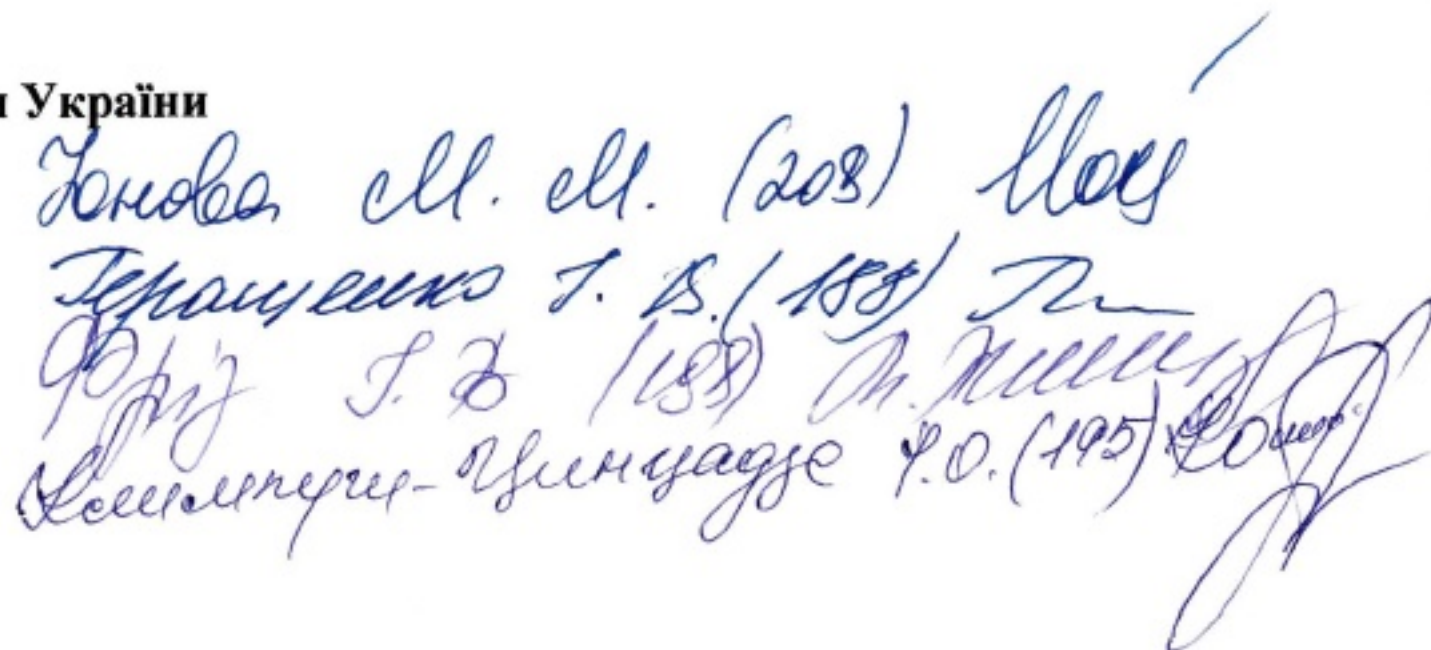 и України
Іонова М. М. (208)
Геращенко І. В. (188)
Фріз І. В (188)
Климпуш-Цинцадзе І.О. (195)